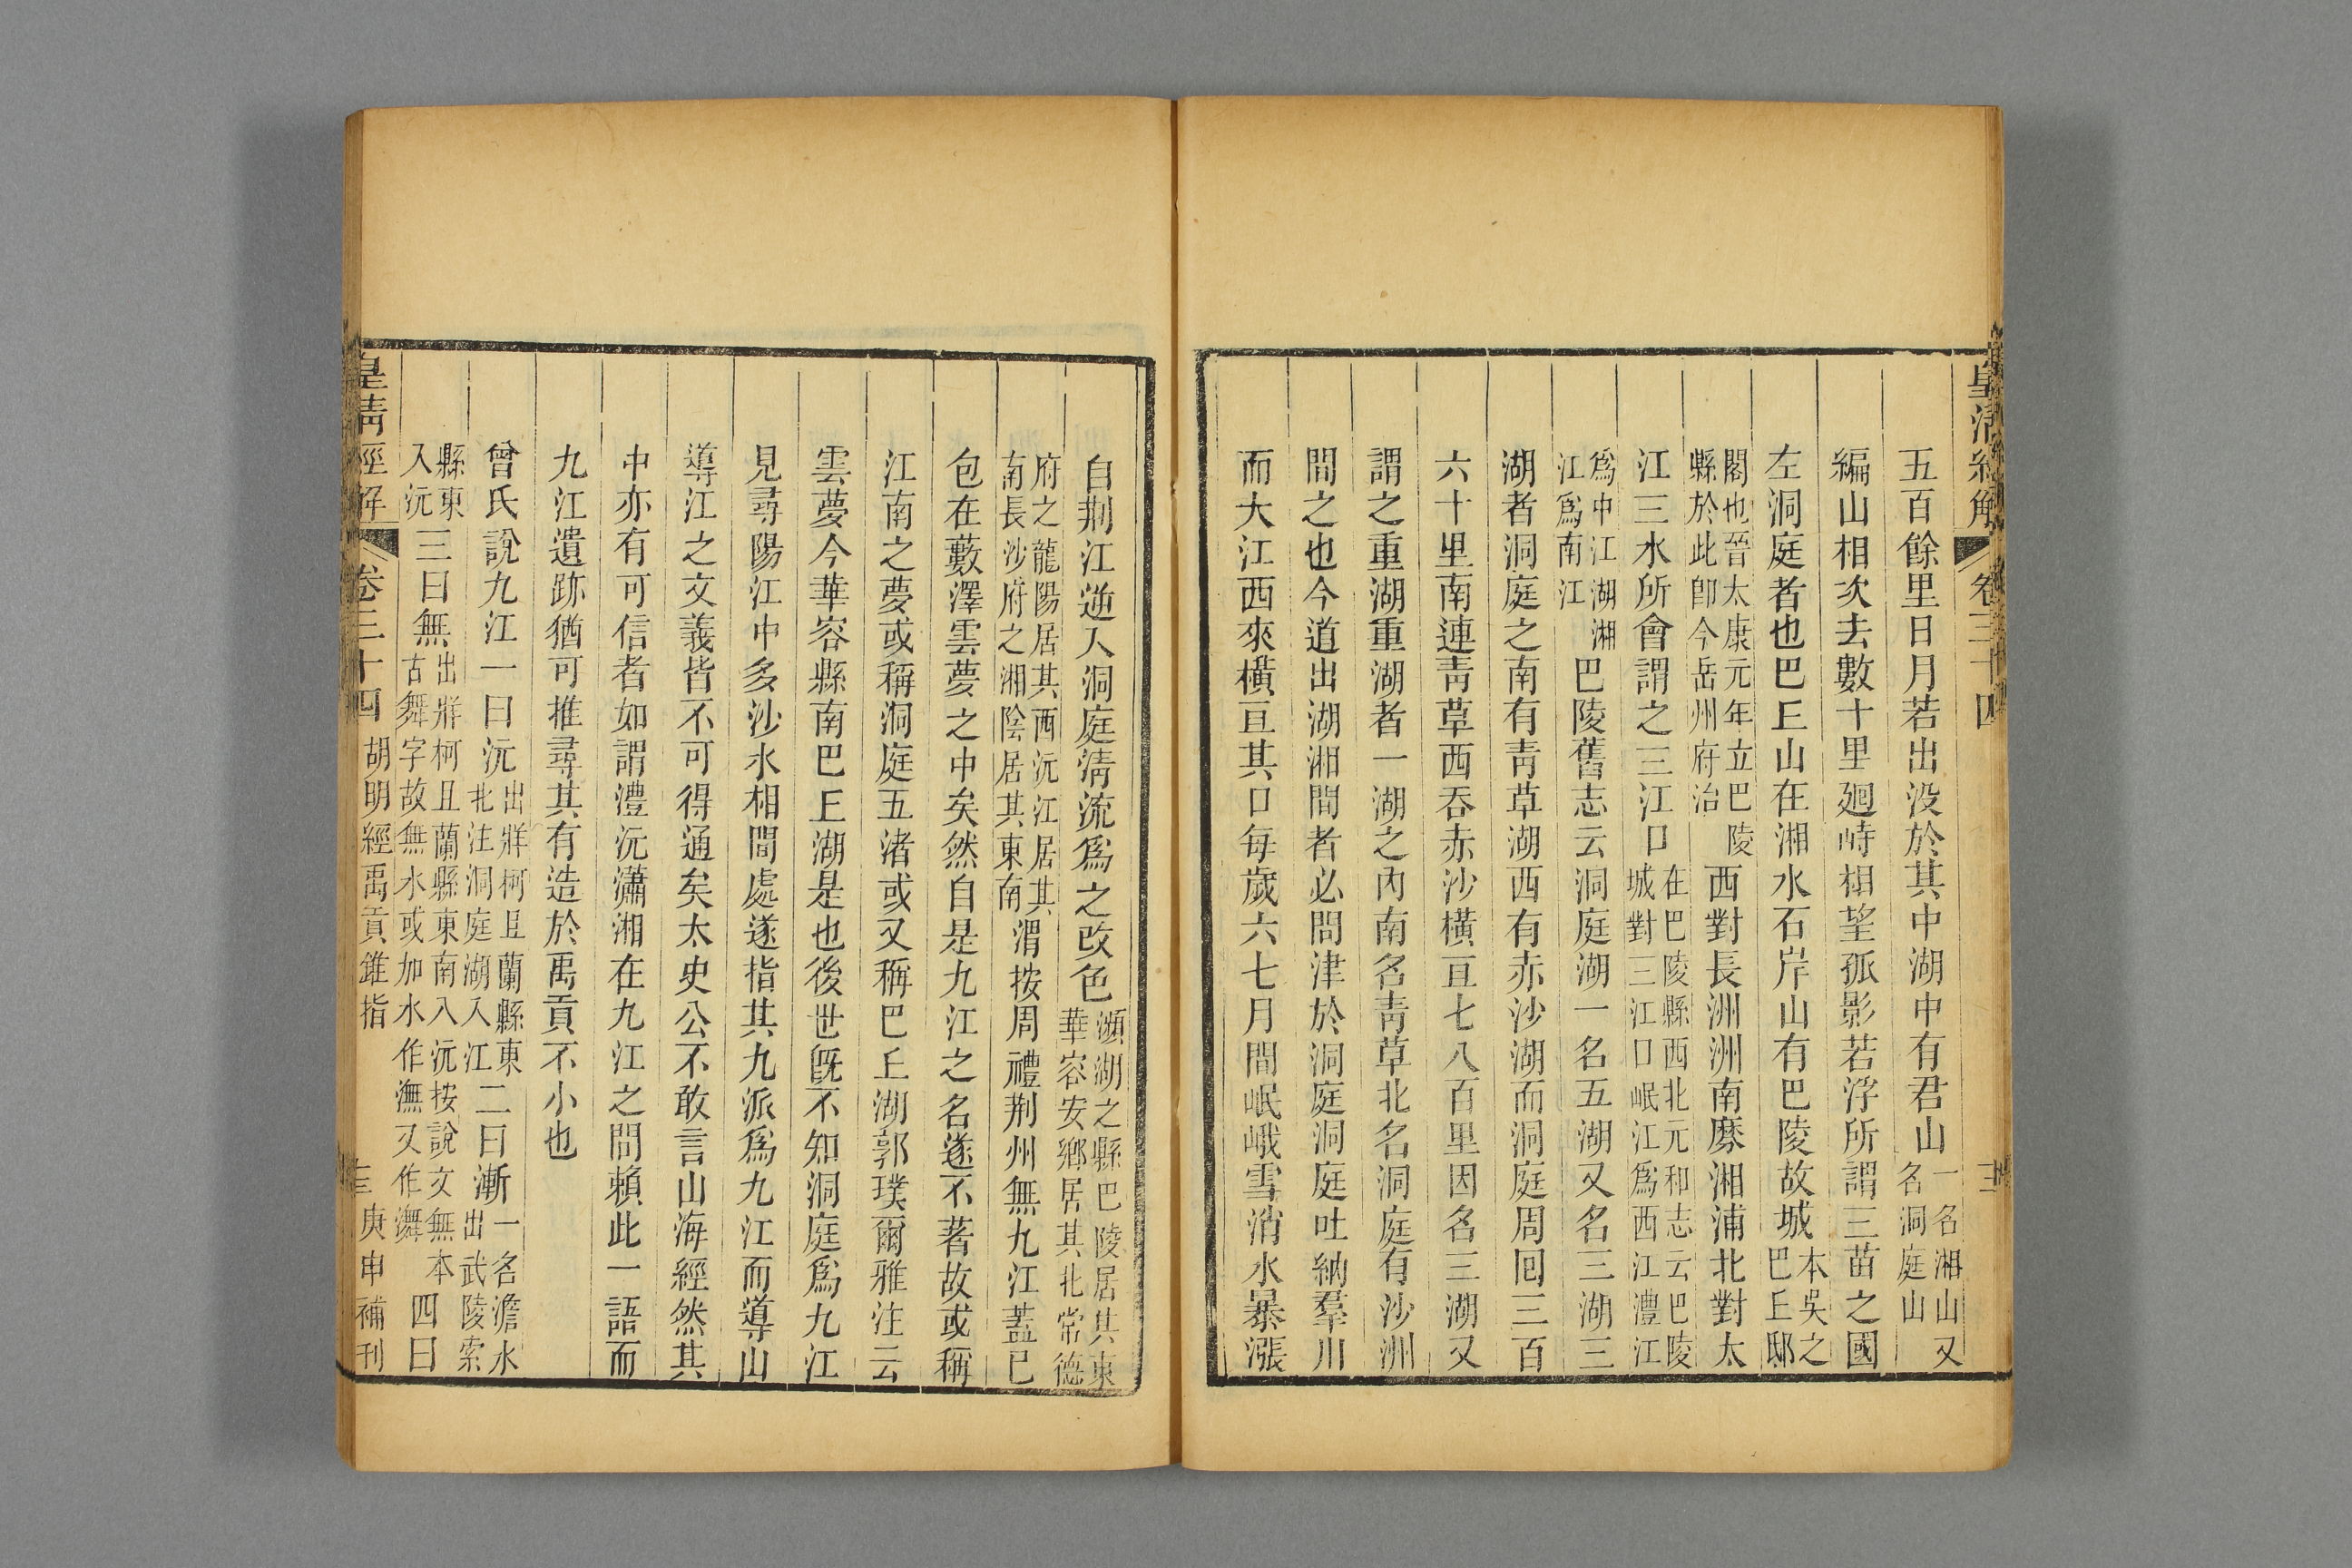 皇清經解 卷三十四
五百餘里日月若出没於其中湖中有君山一名湘山又名洞庭山
編山相次去數十里廻峙相望孤影若浮所謂三苗之國
左洞庭者也巴丘山在湘水右岸山有巴陵故城本吳之巴丘邸
閣也晉太康元年立巴陵縣於此卽今岳州府治西對長洲洲南㢠湘浦北對太
江三水所會謂之三江口在巴陵縣西北元和志云巴陵城對三江口岷江爲西江澧江
爲中江湘江爲南江巴陵舊志云洞庭湖一名五湖又名三湖三
湖者洞庭之南有靑草湖西有赤沙湖而洞庭周回三百
六十里南連靑草西吞赤沙橫亘七八百里因名三湖又
謂之重湖重湖者一湖之內南名靑草北名洞庭有沙洲
間之也今道出湖湘間者必問津於洞庭洞庭吐納羣川
而大江西來橫亘其口每歲六七月間岷峨雪消水暴漲
自荆江逆入洞庭淸流爲之改色瀕湖之縣巴陵居其東華容安鄉居其北常德
府之龍陽居其西沅江居其南長沙府之湘陰居其東南渭按周禮荆州無九江蓋已
包在藪澤雲夢之中矣然自是九江之名遂不著故或稱
江南之夢或稱洞庭五渚或又稱巴丘湖郭璞爾雅注云
雲夢今華容縣南巴丘湖是也後世旣不知洞庭爲九江
見尋陽江中多沙水相間處遂指其九派爲九江而導山
導江之文義皆不可得通矣太史公不敢言山海經然其
中亦有可信者如謂澧沅瀟湘在九江之間賴此一語而
九江遺跡猶可推尋其有造於禹貢不小也
曾氏說九江一曰沅出牂柯且蘭縣東北注洞庭湖入江二曰漸一名澹水出武陵索
縣東入沅三曰無出牂柯且蘭縣東南入沅按說文無本古舞字故無水或加水作潕又作㵲四曰
皇淸經解 卷三十四 胡明經禹貢錐指 三 庚申補刊